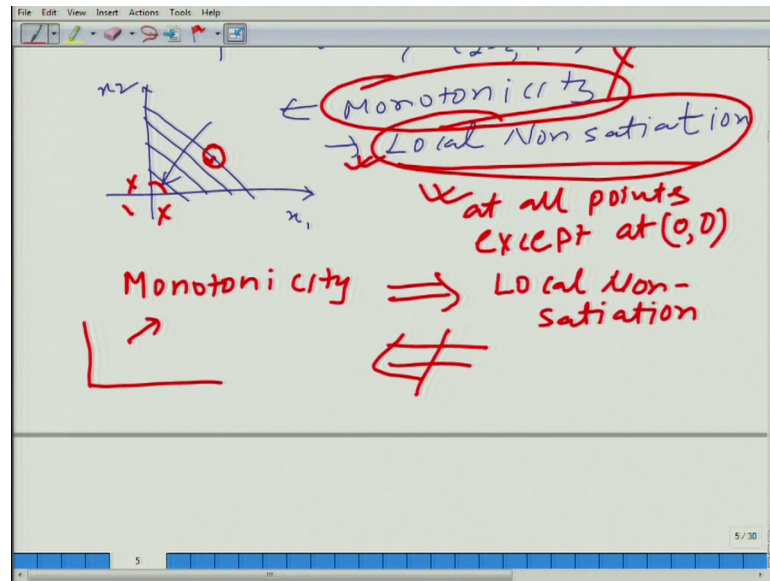 File Edit View Insert Actions Tools Help
x2
Monotonicity
Local Non satiation
x1
at all points
except at (0,0)
Monotonicity ⇒ Local Non-
satiation
5/30
5